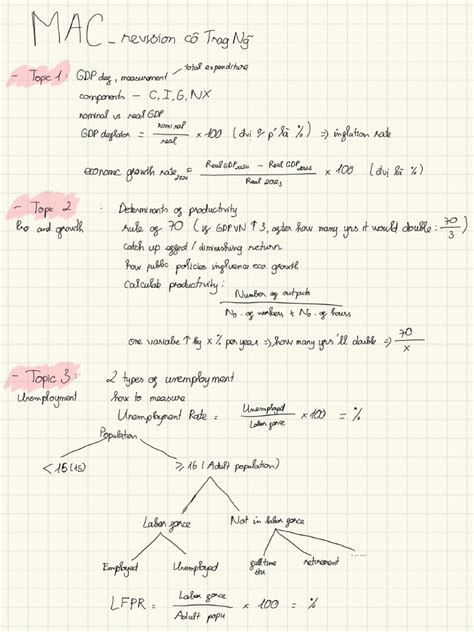 MAC - revision cô Trag Ng~
- Topic 1: GDP deg, measurement total expenditure
components - C, I, G, NX
nominal vs real GDP
GDP deflator = nominal / real × 100 (đvi là %) ⇒ inflation rate
economic growth rate2024 = Real GDP2024 - Real GDP2023 / Real 2023 × 100 (đvị là %)
- Topic 2: Determinants of productivity
Pro and growth rule of 70 (if GDP VN ↑ 3, after how many yrs it would double: 70/3)
catch up effect / diminishing return
how public policies influence eco growth
Calculate productivity: Number of outputs / No. of workers x No. of hours
One variable ↑ by x % per year ⇒ how many yrs'll double ⇒ 70/x
- Topic 3: 2 types of unemployment
Unemployment how to measure
Unemployment Rate = Unemployed / Labor force × 100 = %
Population
< 15 (15) ≥ 16 (Adult population)
Labor force Not in labor force
Employed Unemployed full time stu retirement .....
LFPR = Labor force / Adult popu × 100 = %